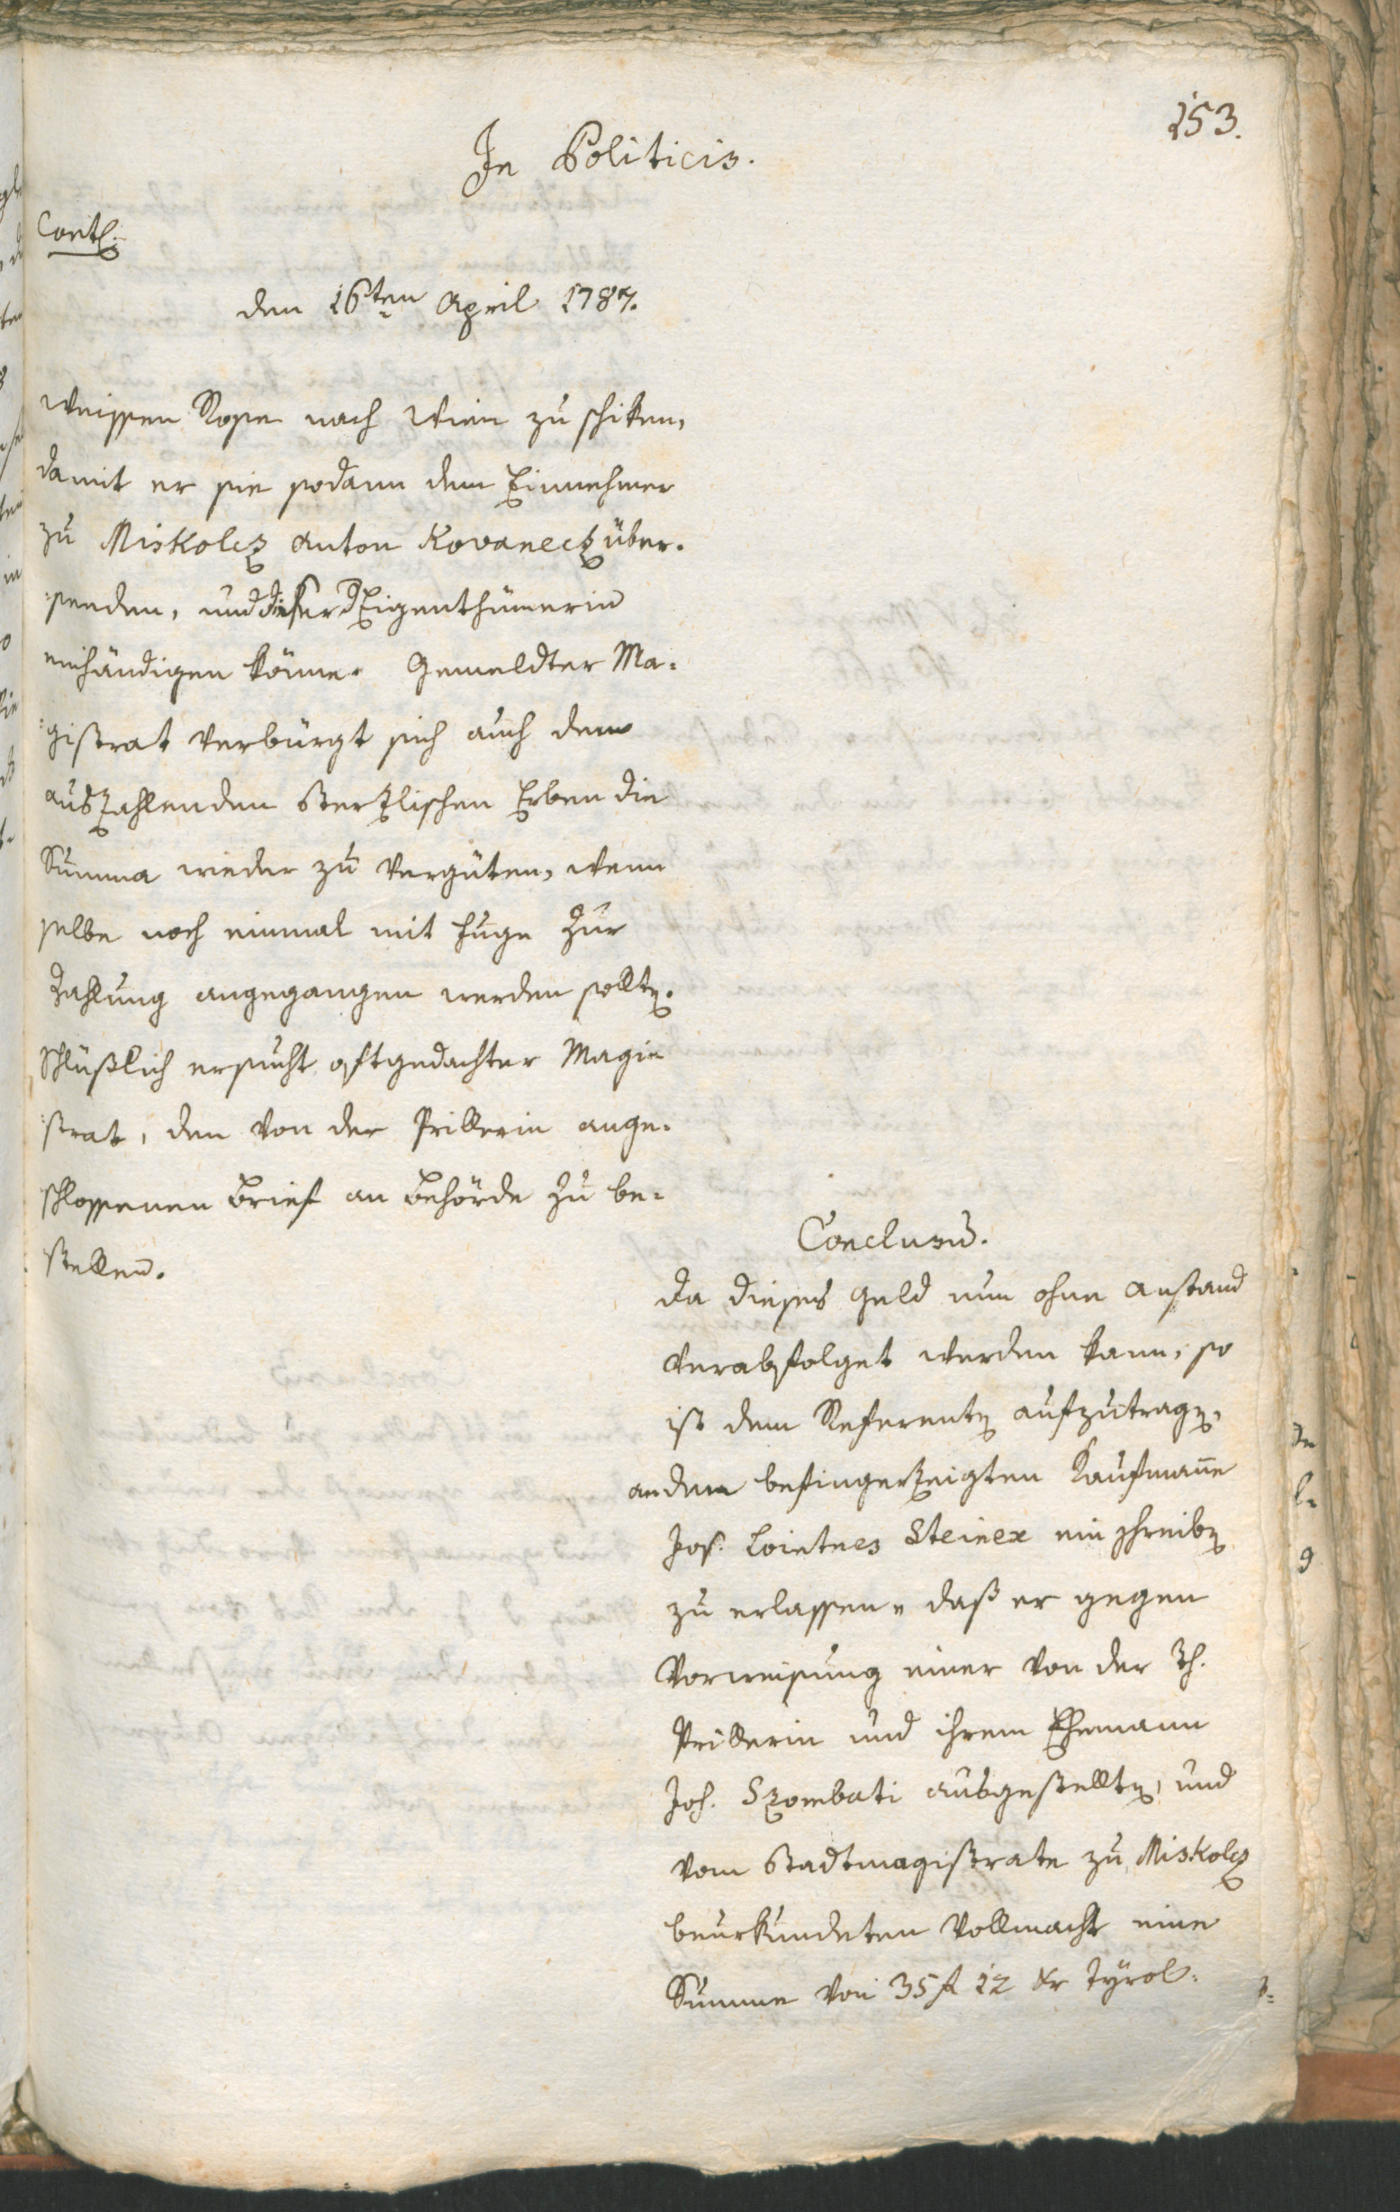 153.
In Politicis.
Contl.
den 16ten April 1787.
weissen Rose nach Wien zu schiken,
damit er sie sodann dem Einnehmer
zu Miskolcz Anton Kovanecz über-
senden, und dieser d Eigenthümerin
einhändigen könne. Gemeldter Ma-
gistrat verbürgt sich auch dem
auszahlenden Sterzlischen Erben die
Summa wieder zu vergüten, wenn
selbe noch einmal mit Fuge zur
Zahlung angegangen werden sollte.
Schlüßlich ersucht oftgedachter Magi-
strat, den von der Prillerin ange-
schlossenen Brief an Behörde zu be-
stellen.
Conclusũ.
Da dieses Geld nun ohne Anstand
verabfolget werden kann, so
ist dem Referenten aufzutragen,
an dem befingerzeigten Kaufmañe
Jos. Lointnes Steiner ein Schreiben
zu erlassen, daß er gegen
Vorweisung einer von der Th.
Prillerin und ihrem Ehemann
Joh. Szombati ausgestellten, und
vom Stadtmagistrate zu Miskolcz
beurkundeten Vollmacht eine
Summe von 35 f 12 Xr Tÿrol-